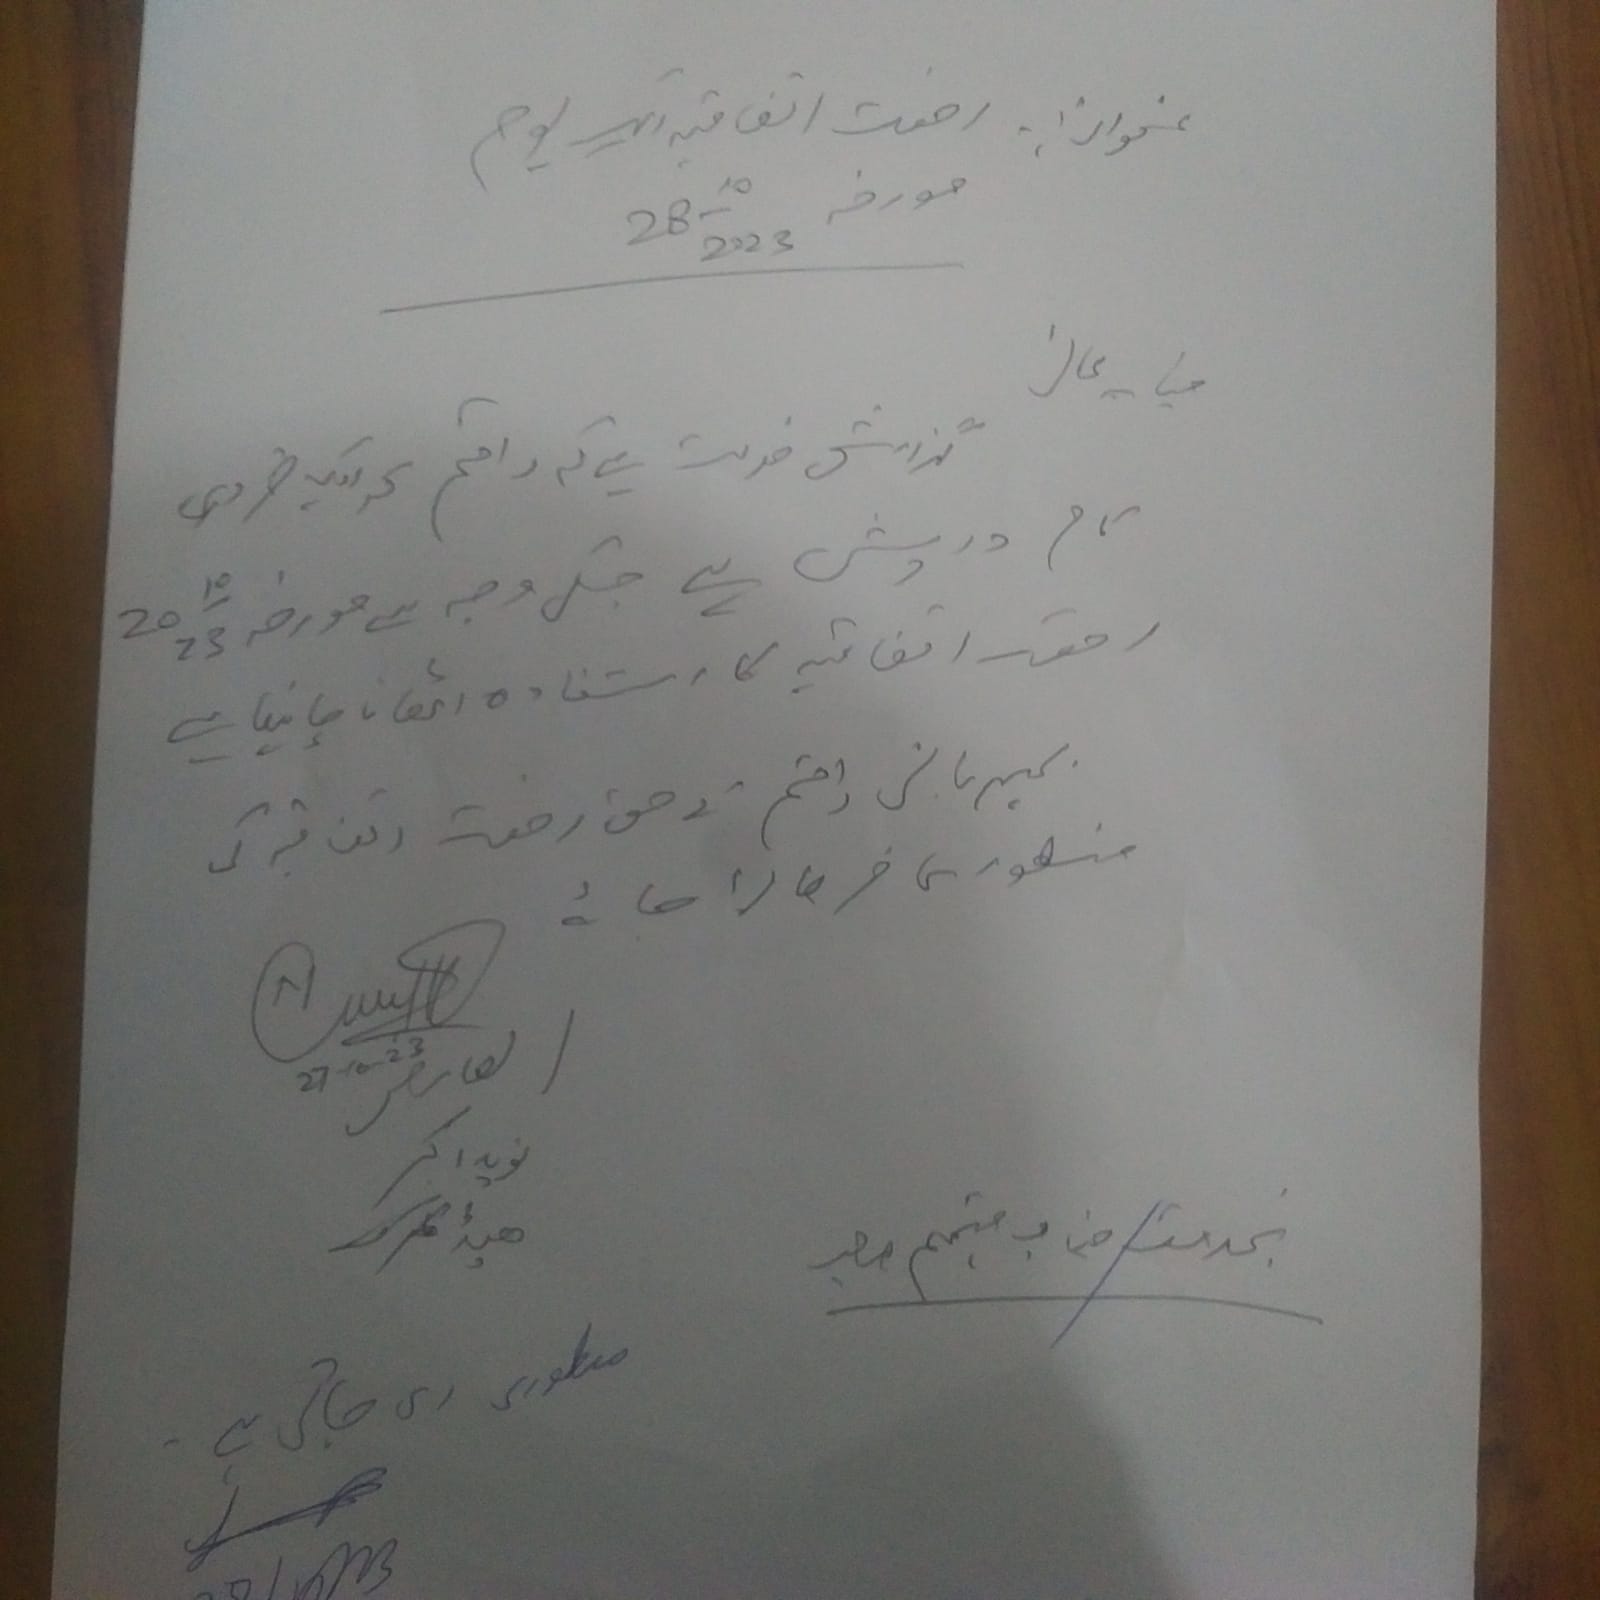 عنوان:۔ رخصت اتفاقیہ ایک یوم
مورخہ 28 10 2023
جناب عالی!
گزارش خدمت ہے کہ راقم کو ایک ضروری
کام درپیش ہے جسکی وجہ سے مورخہ 20 10 23
رخصت اتفاقیہ کا استفادہ اٹھانا چاہتا ہے
بمہربانی راقم کے حق رخصت اتفاقیہ کی
منظوری فرمائی جائے
27-10-23
العارض
نوید اکبر
ہیڈ کلرک
بخدمت جناب مہتمم
منظوری دی جاتی ہے۔